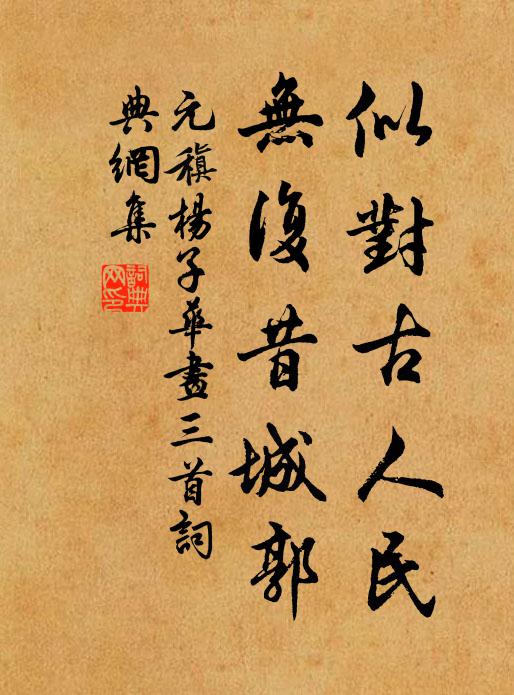 似對古人民
無復昔城郭
元稹楊子華畫三首詞
典網集
詞典网印